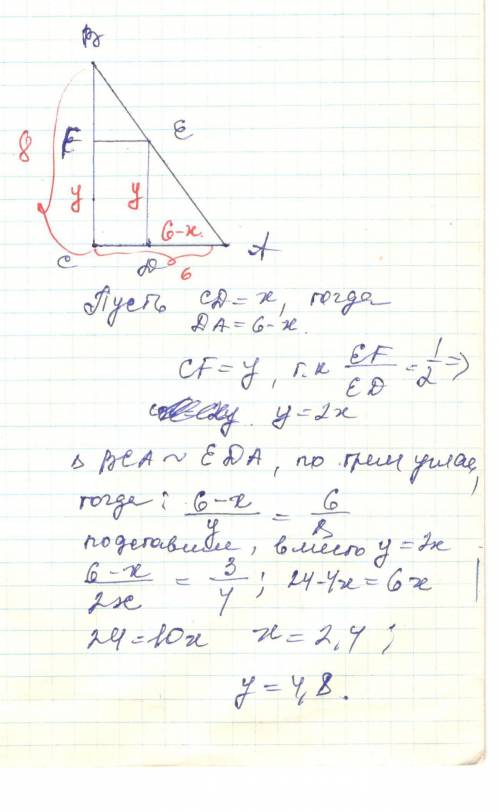 B
F E
8
y y
6-x
C D A
6
Пусть CD = x, тогда
DA = 6-x.
CF = y, т.к EF/ED = 1/2 =>
y = 2x
△ BCA ~ EDA, по трем углас,
тогда: (6-x)/y = 6/8
подставим, вместо y = 2x
(6-x)/2x = 3/4; 24-4x = 6x
24 = 10x x = 2,4;
y = 4,8.